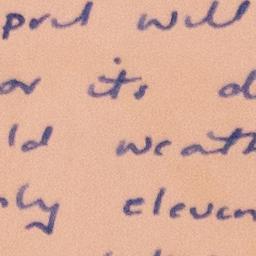 pril will
or its d
ld weath
nly eleven